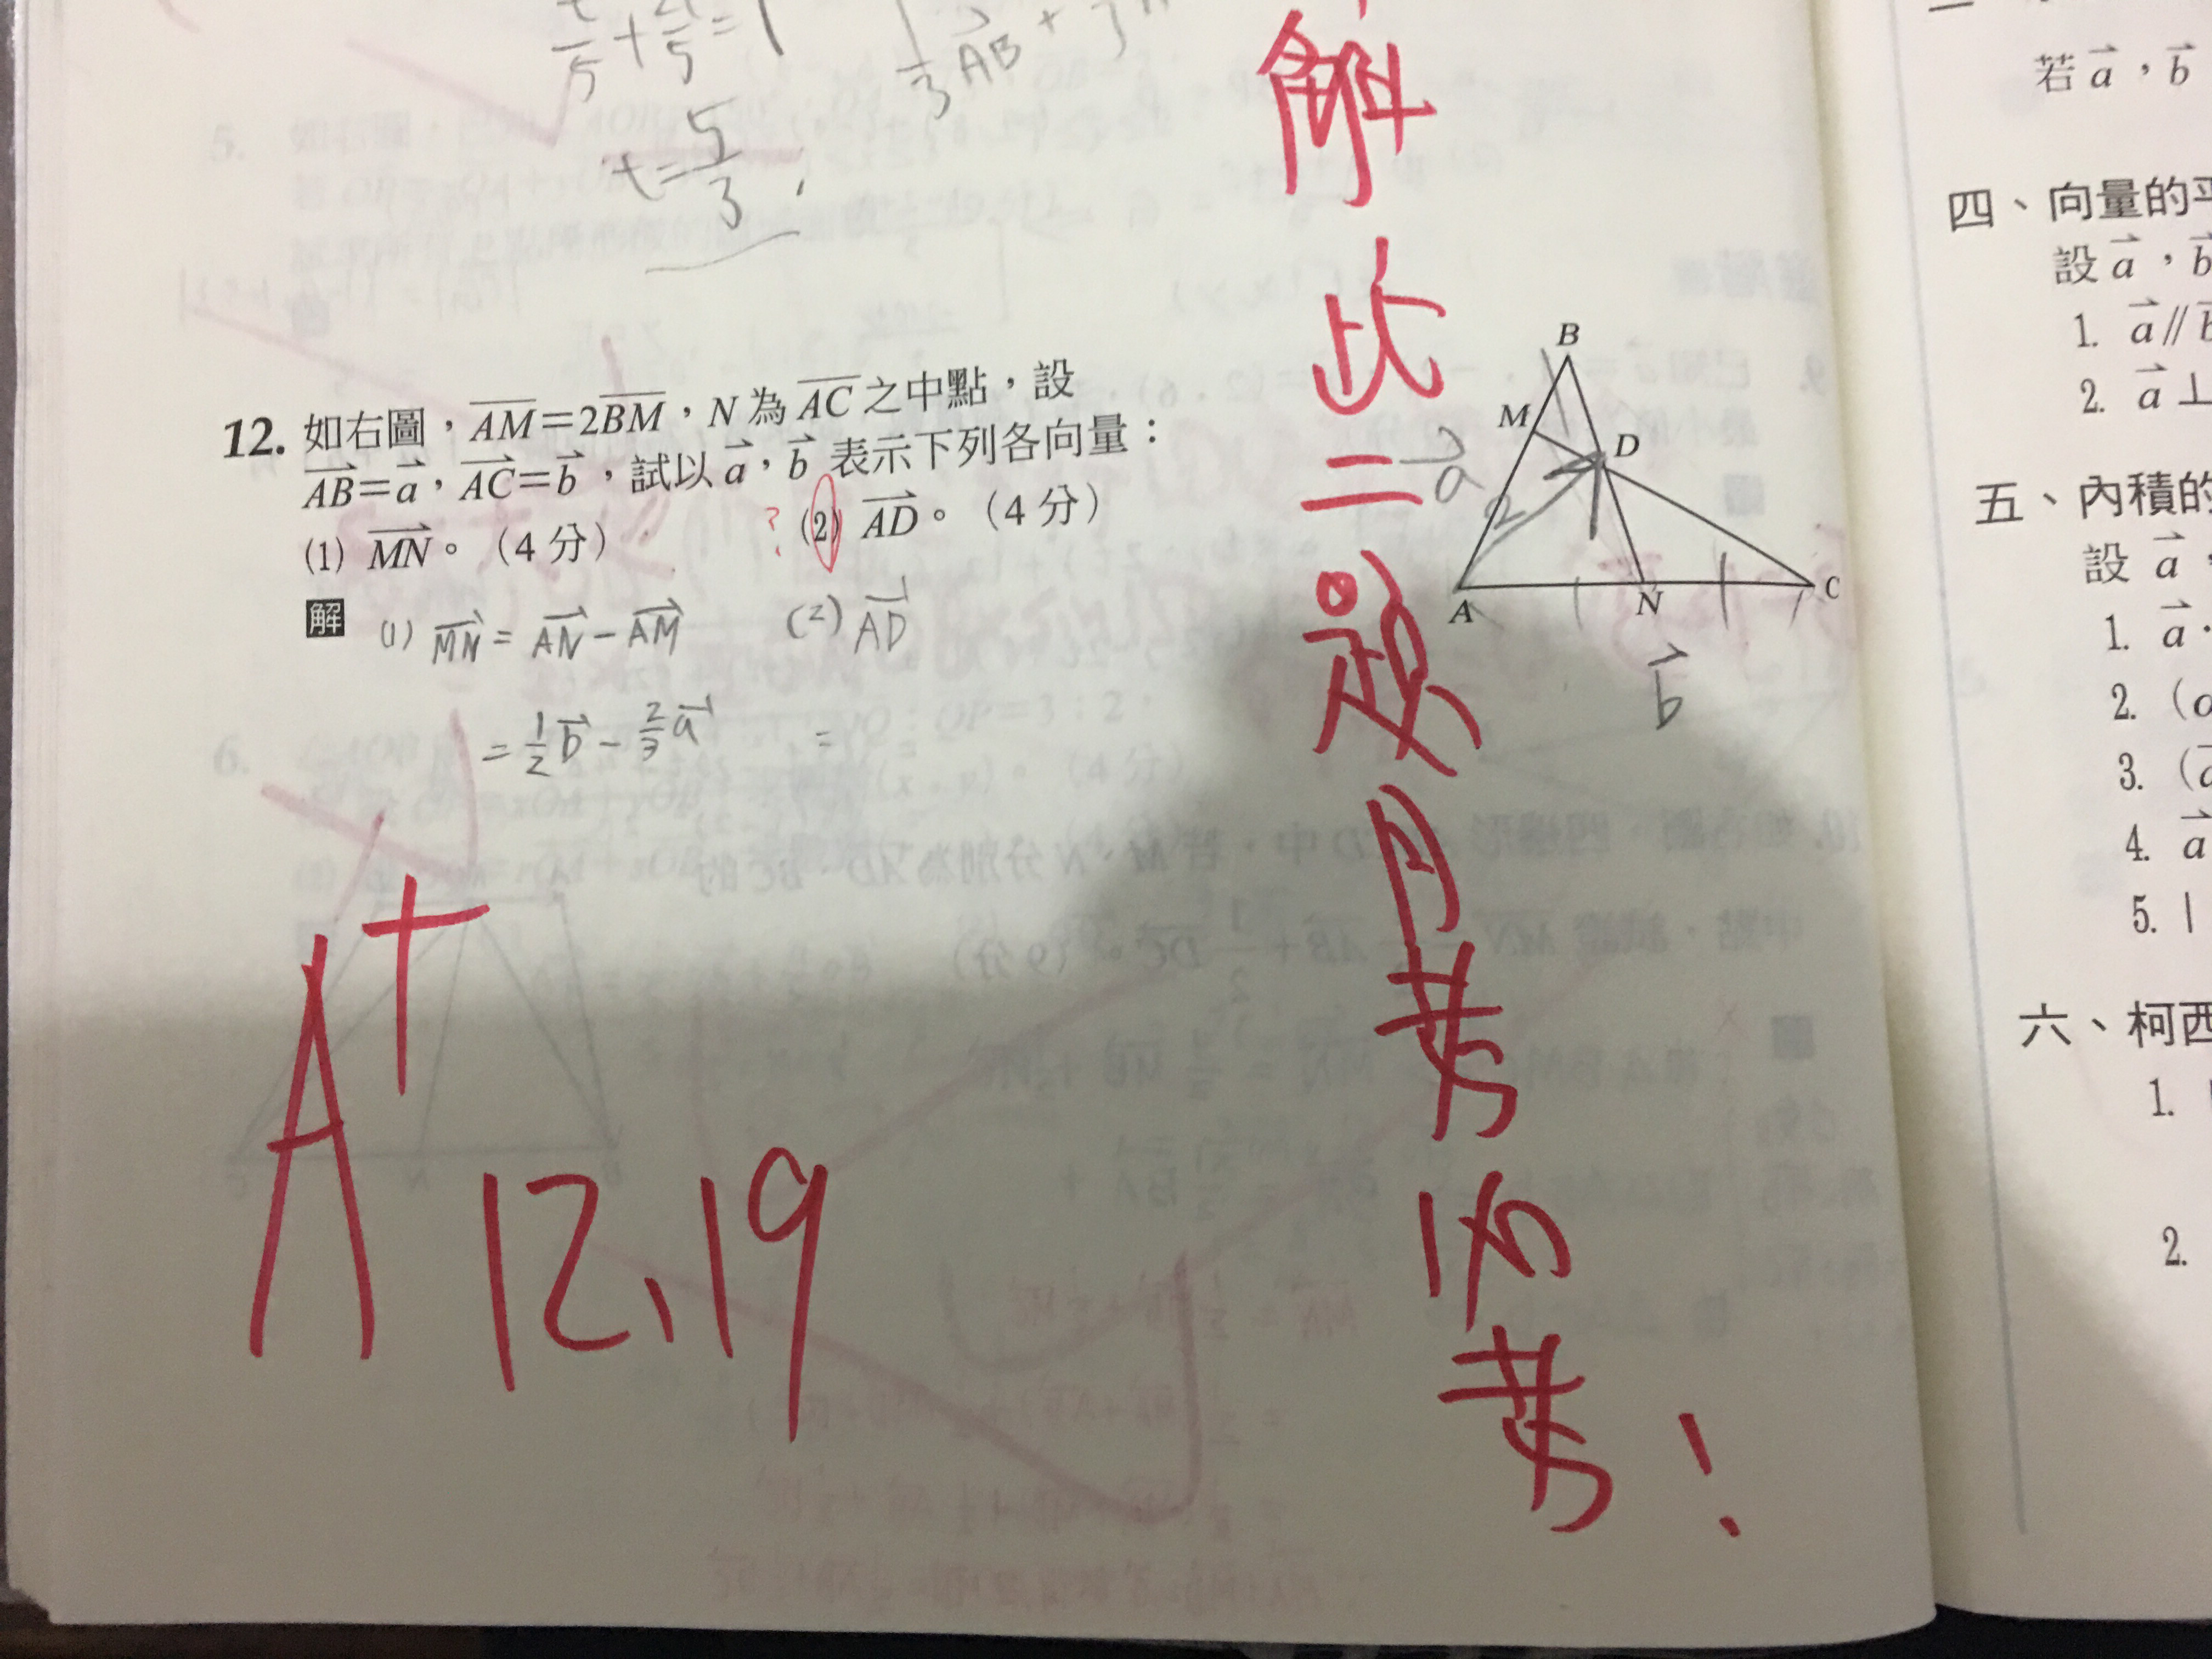 t/5 + 2t/5 = 1
1/3 AB +
t = 5/3
12. 如右圖，AM=2BM，N 為 AC 之中點，設
AB=a，AC=b，試以 a，b 表示下列各向量：
(1) MN。（4 分） ? (2) AD。（4 分）
解 (1) MN = AN - AM (2) AD
= 1/2 b - 2/3 a =
B
M
D
a
2
A
N
C
b
解此二題月考必考！
A+
12.19
若 a，b
四、向量的平
設 a，b
1. a∥b
2. a⊥
五、內積的
設 a，
1. a·
2. (a
3. (a
4. a
5. |
六、柯西
1.
2.